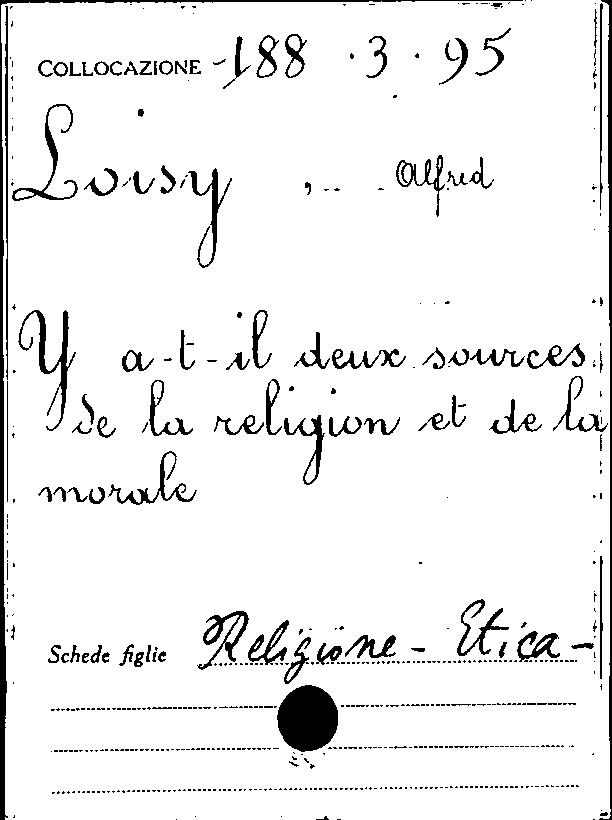 COLLOCAZIONE 188 · 3 · 95
Loisy, Alfred
Y a-t-il deux sources
de la religion et de la
morale
Schede figlie Religione - Etica -